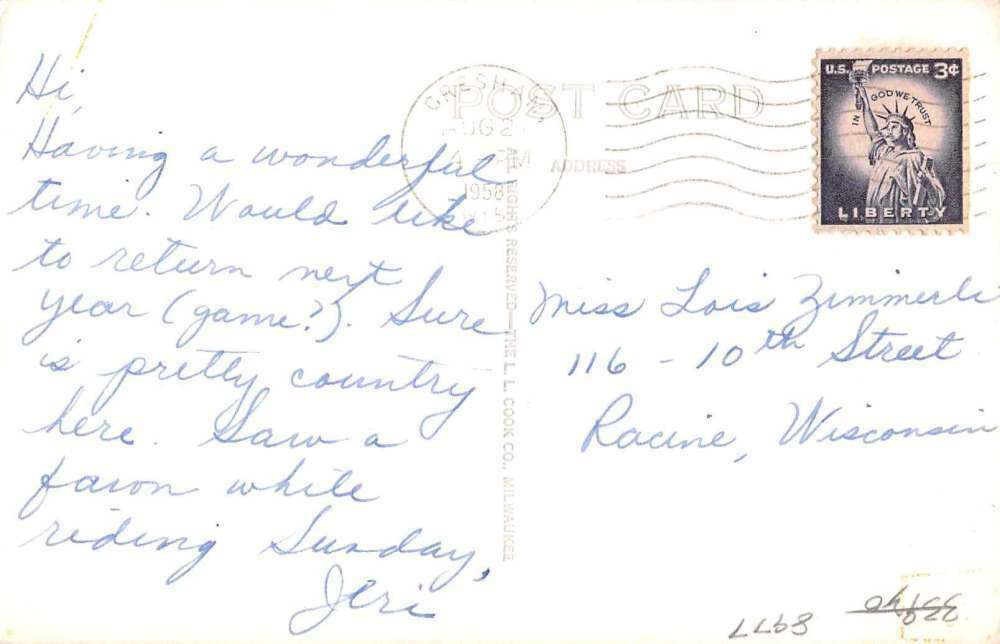 Hi,
Having a wonderful
time. Would like
to return next
year (game?). Sure
is pretty country
here. Saw a
fawn while
riding Sunday,
Jeri
POST CARD
ADDRESS
GRESHAM,
AUG 2
PM
1958
WIS
U.S. POSTAGE 3¢
IN GOD WE TRUST
LIBERTY
ALL RIGHTS RESERVED—THE L. L. COOK CO., MILWAUKEE
Miss Lois Zimmerli
116 - 10th Street
Racine, Wisconsin